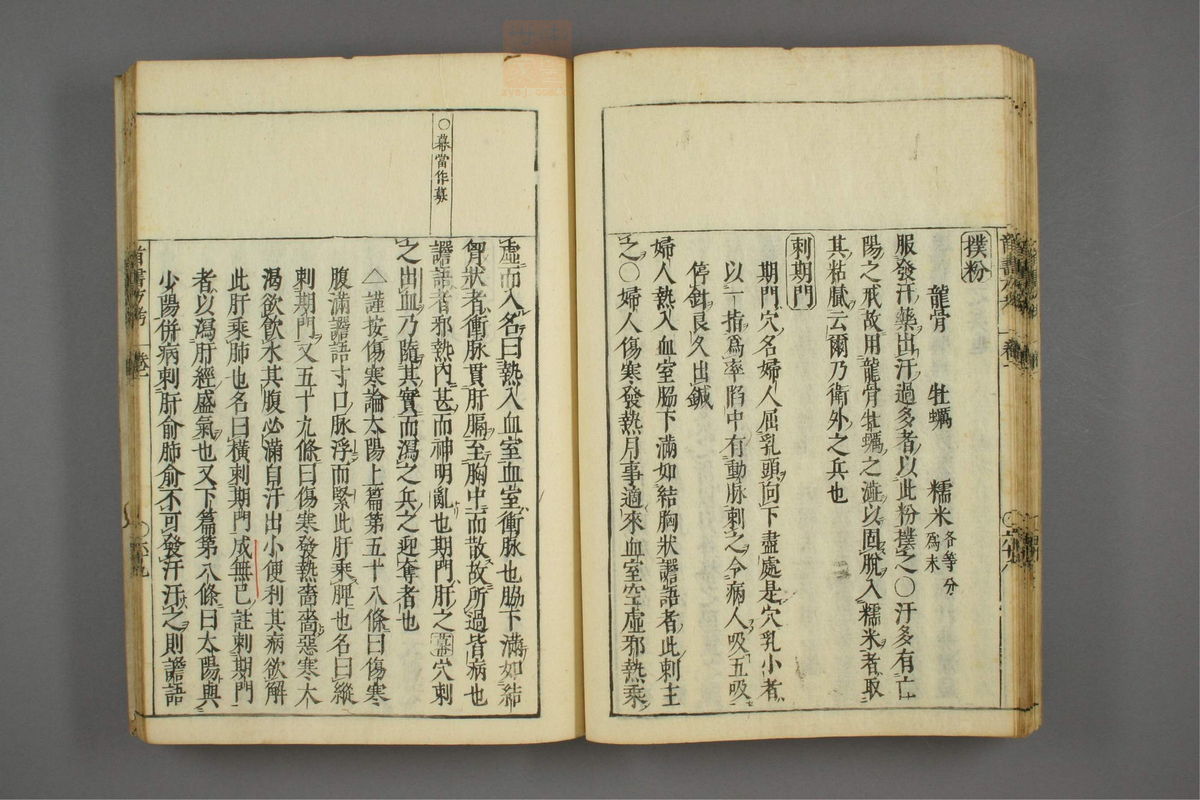 撲粉
龍骨　牡蠣　糯米各等分爲末
服發汗藥出汗過多者以此粉撲之○汗多有亡
陽之戒故用龍骨牡蠣之澁以固脫入糯米者取
其粘膩云爾乃衛外之兵也
刺期門
期門穴名婦人屈乳頭向下盡處是穴乳小者
以一指爲率陷中有動脉刺之令病人吸五吸
停針良久出鍼
婦人熱入血室脇下滿如結胸狀譫語者此刺主
之○婦人傷寒發熱月事適來血室空虛邪熱乘
虛而入名曰熱入血室血室衝脉也脇下滿如結
胷狀者衝脉貫肝膈至胸中而散故所過皆病也
○幕當作募
譫語者邪熱內甚而神明亂也期門肝之幕穴刺
之出血乃隨其實而瀉之兵之迎奪者也
△謹按傷寒論太陽上篇第五十八條曰傷寒
腹滿譫語寸口脉浮而緊此肝乘脾也名曰縱
刺期門又五十九條曰傷寒發熱嗇嗇惡寒大
渴欲飮水其腹必滿自汗出小便利其病欲解
此肝乘肺也名曰橫刺期門成無已註刺期門
者以瀉肝經盛氣也又下篇第八條曰太陽與
少陽併病刺肝俞肺俞不可發汗汗之則譫語